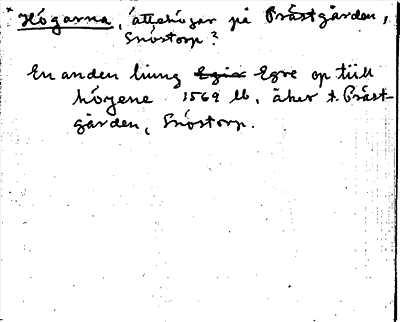 Högarna, ättehögar på Prästgården,
Snöstorp?
En anden liung Egre op till
högene 1569 lb, åker t. Präst-
gården, Snöstorp.